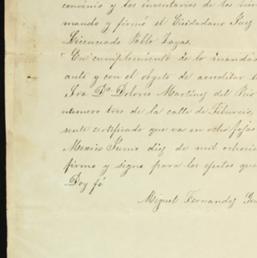 convenio y los inventarios de los
mando y firmó el Ciudadano Juez
Licenciado Pablo Zayas.
En cumplimiento de lo mandado
ante y con el objeto de acreditar
Sra Da Dolores Martinez del Rio
numero tres de la calle de Tiburcio,
sente certificado que va en ocho fojas
Mexico Junio diez de mil ochocien
firmo y signo para los efectos que
Doy fé
Miguel Fernandez